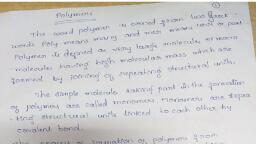 Polymers
The word polymer is coined from two Greek
words Poly means many and mer means unit or part
Polymer is defined as very large molecule or means
molecules having high molecular mass which are
formed by joining of repeating structural units.
The simple molecule taking part in the formation
of polymers are called monomers. Monomers are repea
-ting structural units linked to each other by
covalent bond.
The process of formation of polymers from